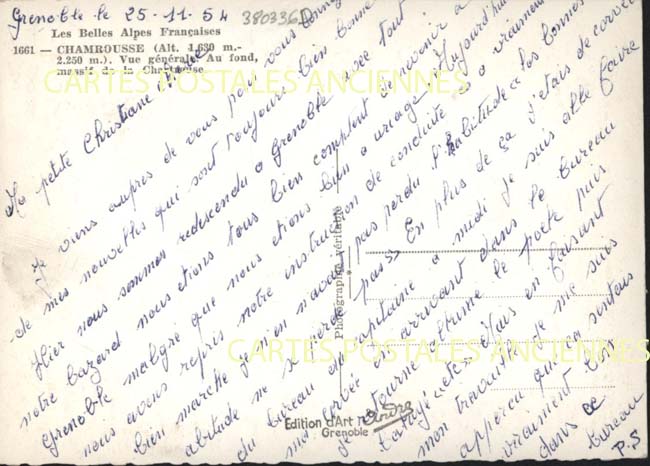 Grenoble le 25.11.54
380336D
Les Belles Alpes Françaises
1661 - CHAMROUSSE (Alt. 1.630 m.-
2.250 m.). Vue générale. Au fond,
massif de la Chartreuse.
CARTES POSTALES ANCIENNES
Ma petite Christiane
Je viens auprès de vous pour vous donner
de mes nouvelles qui sont toujours bien bonne
Hier nous sommes redescendu a Grenoble avec tout
notre bazard nous etions tous bien comptent de revenir a
Grenoble malgré que nous etions bien a uriage Aujourd'hui
nous avons repris notre instruction de conduite
bien marché je n'en navais pas perdu l'habitude « les bonnes
abitude ne se perde pas » En plus de ça j'etais de corvée
du bureau du capitaine a midi je suis allé faire
ma corvée en arrivant dans le bureau
je tourne allume le poste puis
mon travail je me suis
aperçu qu'ça sentais
vraiment
dans ce bureau
P.S
Photographie Véritable
CARTES POSTALES ANCIENNES
Edition d'Art
Grenoble